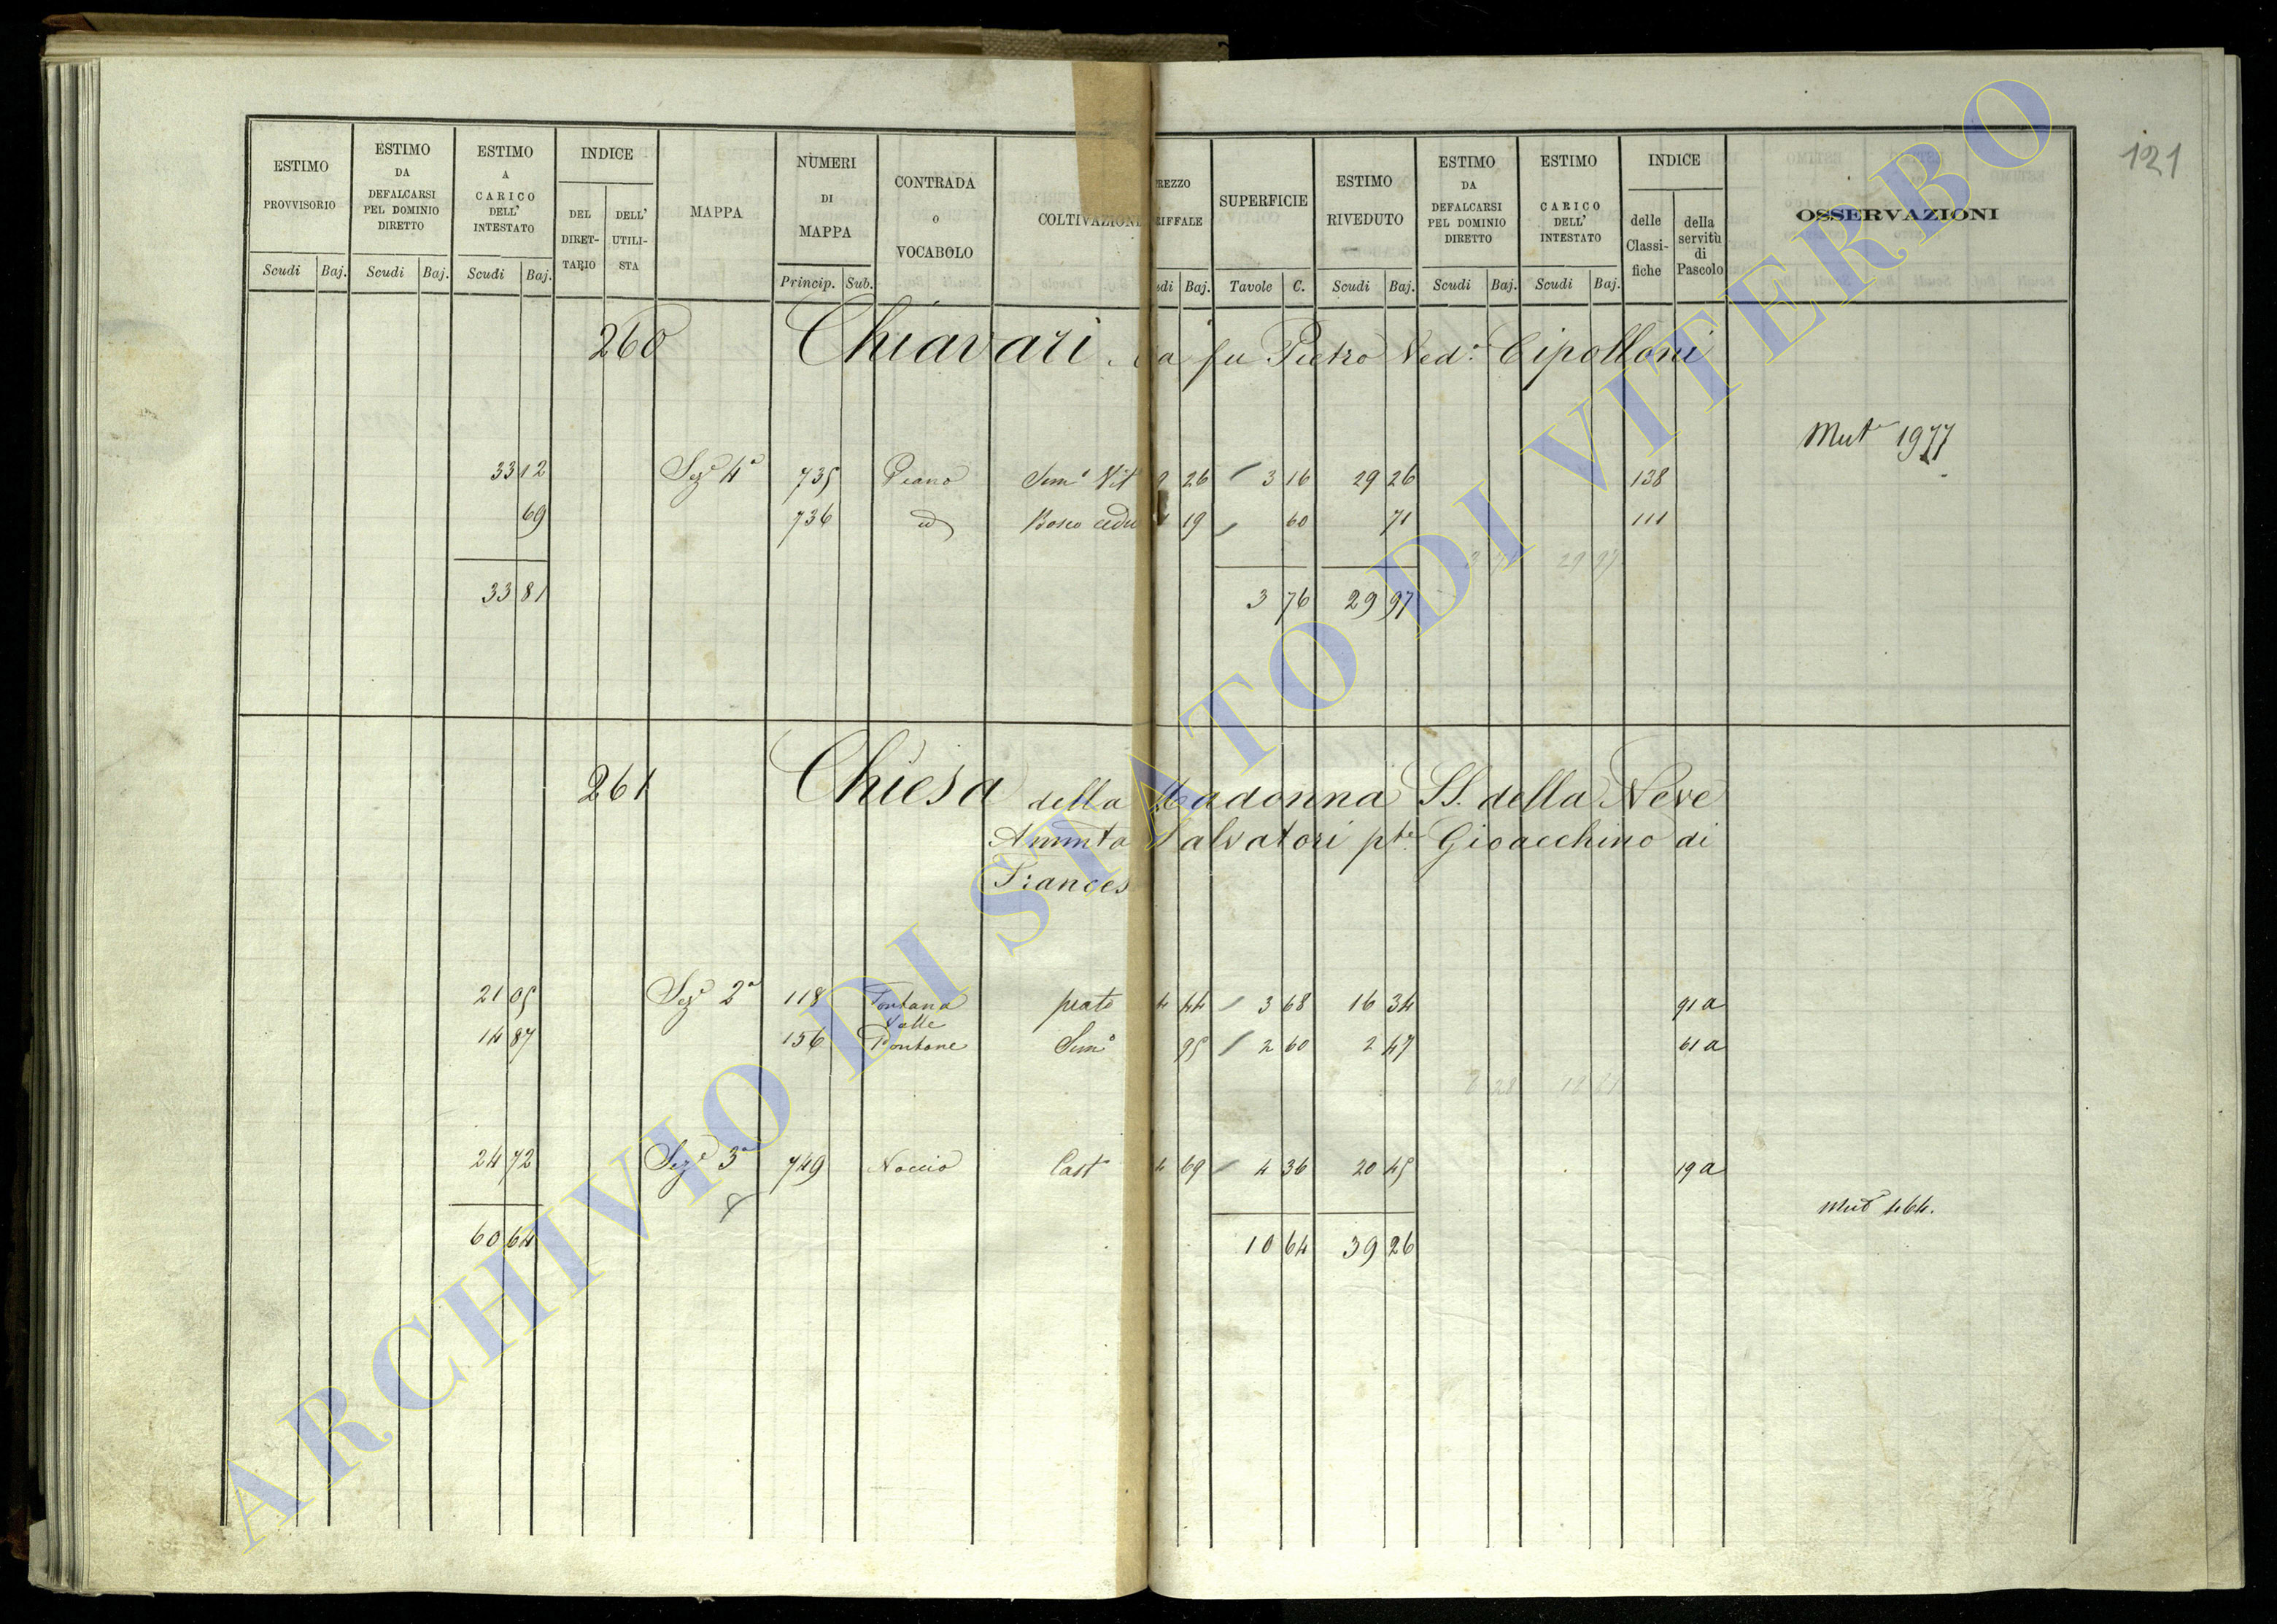 121
ESTIMO PROVVISORIO
ESTIMO DA DEFALCARSI PEL DOMINIO DIRETTO
ESTIMO A CARICO DELL' INTESTATO
INDICE
DEL DIRET-TARIO
DELL' UTILI-STA
MAPPA
NUMERI DI MAPPA
CONTRADA O VOCABOLO
COLTIVAZION
REZZO RIFFALE
SUPERFICIE
ESTIMO RIVEDUTO
ESTIMO DA DEFALCARSI PEL DOMINIO DIRETTO
ESTIMO CARICO DELL' INTESTATO
INDICE
delle Classi-fiche
della servitù di Pascolo
OSSERVAZIONI
Scudi Baj. Scudi Baj. Scudi Baj. Princip. Sub. udi Baj. Tavole C. Scudi Baj. Scudi Baj. Scudi Baj.
260 Chiavari a fu Pietro Ved.a Cipolloni
Mut.e 1977
33 12 Sez.e 4a 735 Piano Sem.o Vit 9 26 3 16 29 26 138
69 736 id Bosco cedu 19 60 71 111
33 81 3 76 29 97
261 Chiesa della Madonna SS. della Neve
Ammta Salvatori pte Gioacchino di
Frances
21 05 Sez.e 2a 118 Fontana Valle prato 4 44 3 68 16 34 91 a
14 87 156 Pontone Sem.o 95 2 60 2 47 61 a
24 72 Sez.e 3a 749 Noccio Cast 4 69 4 36 20 45 19 a
Mut 464.
60 64 10 64 39 26
ARCHIVIO DI STATO DI VITERBO